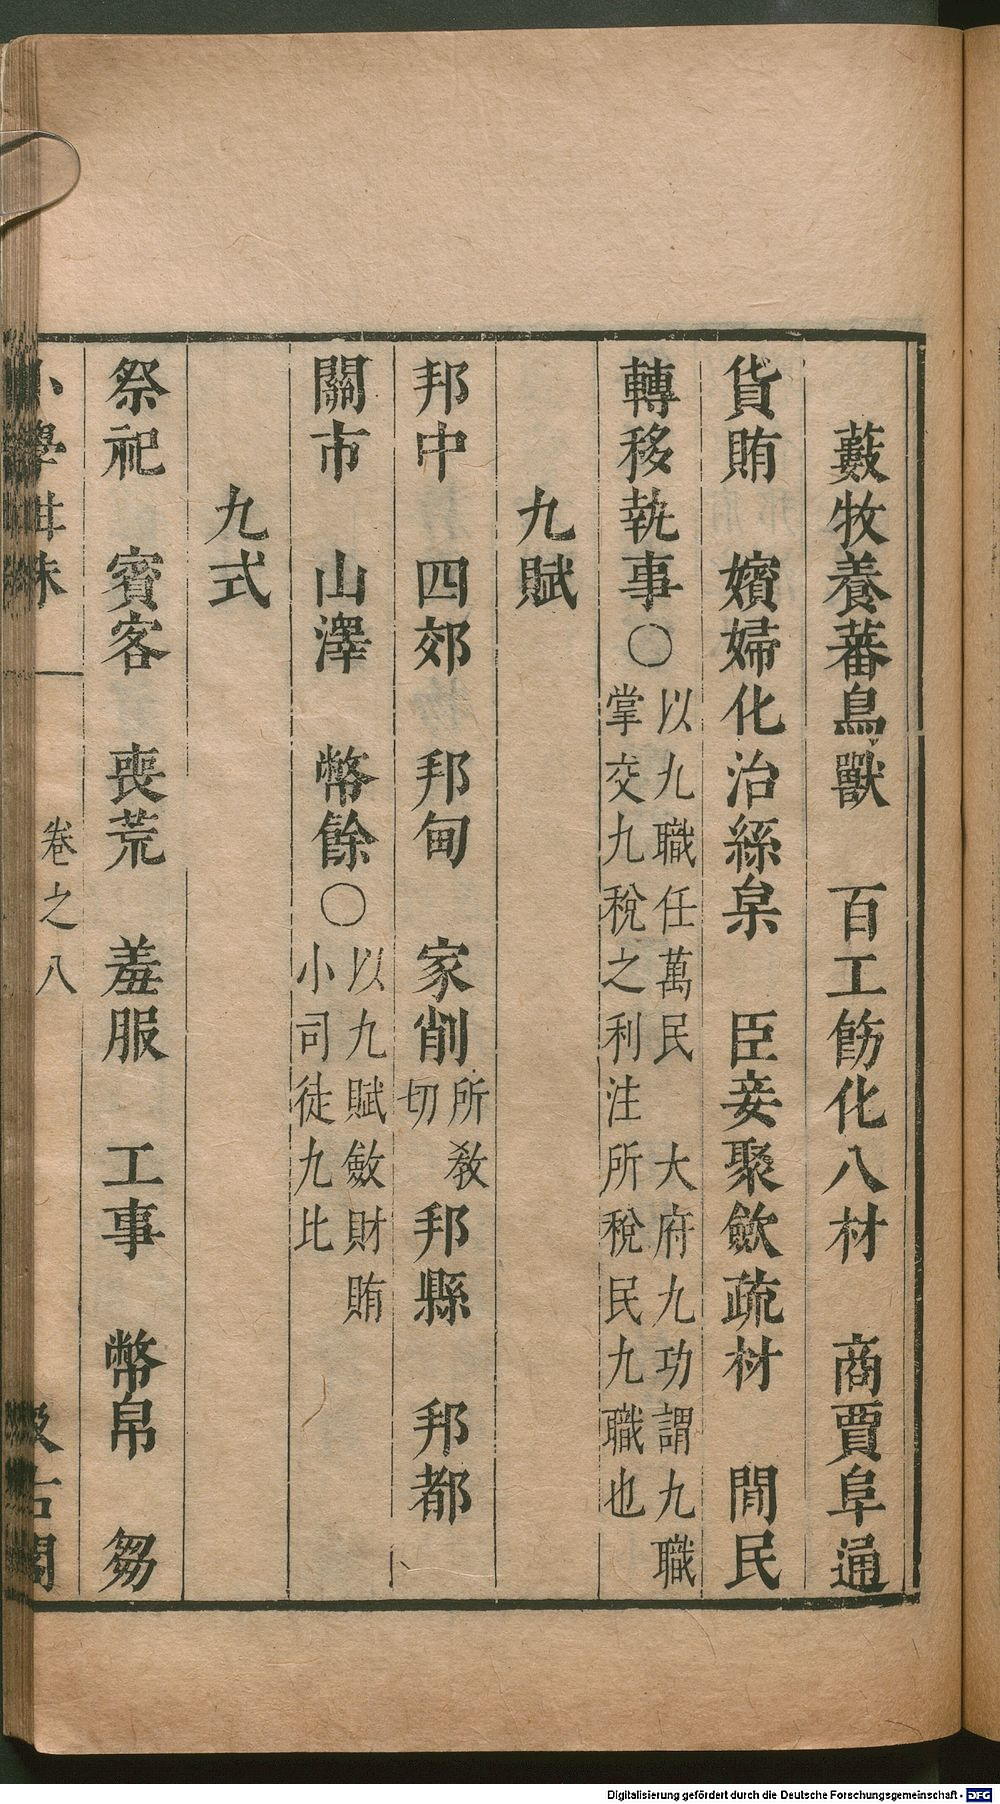 藪牧養蕃鳥獸　百工飭化八材　商賈阜通
貨賄　嬪婦化治絲枲　臣妾聚斂疏材　閒民
轉移執事○以九職任萬民　大府九功謂九職
掌交九稅之利注所稅民九職也
九賦
邦中　四郊　邦甸　家削所教切　邦縣　邦都
關市　山澤　幣餘○以九賦斂財賄
小司徒九比
九式
祭祀　賓客　喪荒　羞服　工事　幣帛　芻
小學紺珠　卷之八　汲古閣
Digitalisierung gefördert durch die Deutsche Forschungsgemeinschaft - DFG